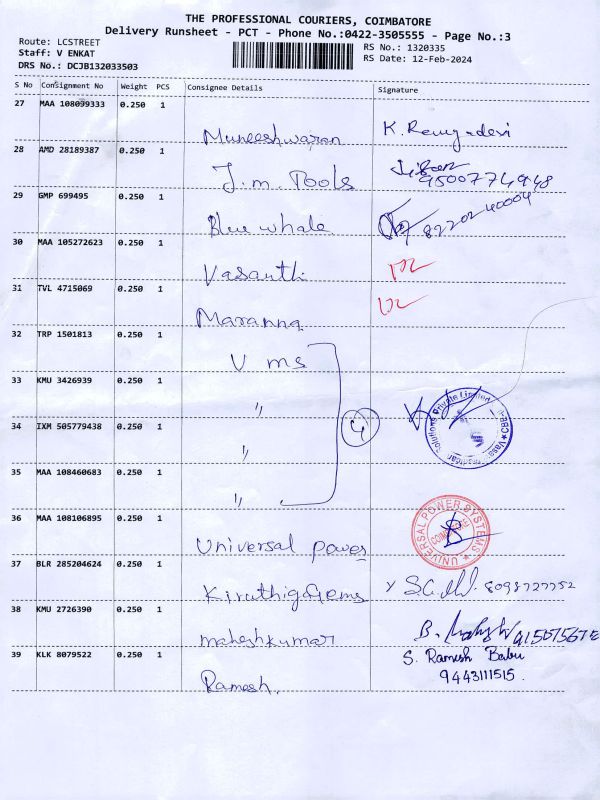 THE PROFESSIONAL COURIERS, COIMBATORE
Delivery Runsheet - PCT - Phone No.:0422-3505555 - Page No.:3
Route: LCSTREET
Staff: V ENKAT
DRS No.: DCJB132033503
RS No.: 1320335
RS Date: 12-Feb-2024
S No Consignment No Weight PCS Consignee Details Signature
27 MAA 108099333 0.250 1
Muneeshwaran K. Renugadevi
28 AMD 28189387 0.250 1
J.m. Tools 9500774948
29 GMP 699495 0.250 1
Blue whale 8220240004
30 MAA 105272623 0.250 1
Vasanthi DL
31 TVL 4715069 0.250 1
Maranna DL
32 TRP 1501813 0.250 1
V ms
33 KMU 3426939 0.250 1
"
34 IXM 505779438 0.250 1
"
4
Solutions Private Limited
35 MAA 108460683 0.250 1
"
36 MAA 108106895 0.250 1
Universal power
UNIVERSAL POWER SYSTEMS
37 BLR 285204624 0.250 1
Kiruthiga Gems 8098727752
38 KMU 2726390 0.250 1
maheshkumar
39 KLK 8079522 0.250 1
Ramesh. S. Ramesh Babu
9443111515.